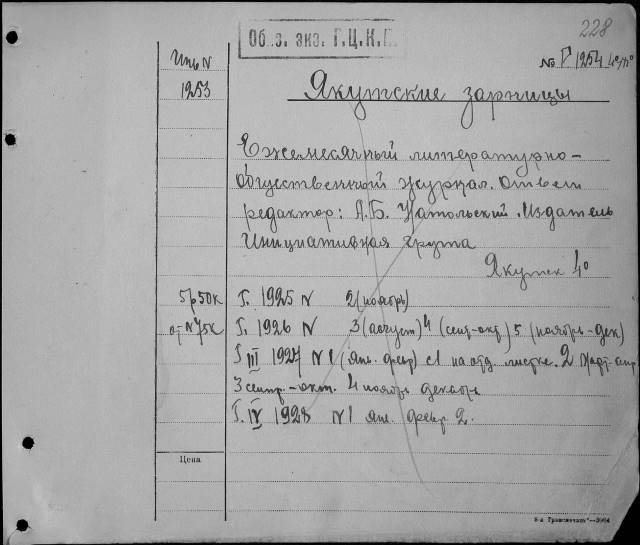 228
Об. э. экз. Г.Ц.К.П.
Инв N
1253
№ Р 1254 4°/п°
Якутские зарницы
Ежемесячный литературно-
общественный журнал. Ответ
редактор: А.Б. Натольский. Издатель
Инициативная група
Якутск 4°
5р50к Г. 1925 N 2 (ноябрь)
от N 75к Г. 1926 N 3 (август) 4 (сент-окт) 5 (ноябрь-дек)
Г. III 1927 N 1 (янв. февр) с1 на отд. листке. 2 март-апр
3 сентр.-окт. 4 ноябрь декабрь
Г. IV 1928 N1 янв. февр 2.
Цена